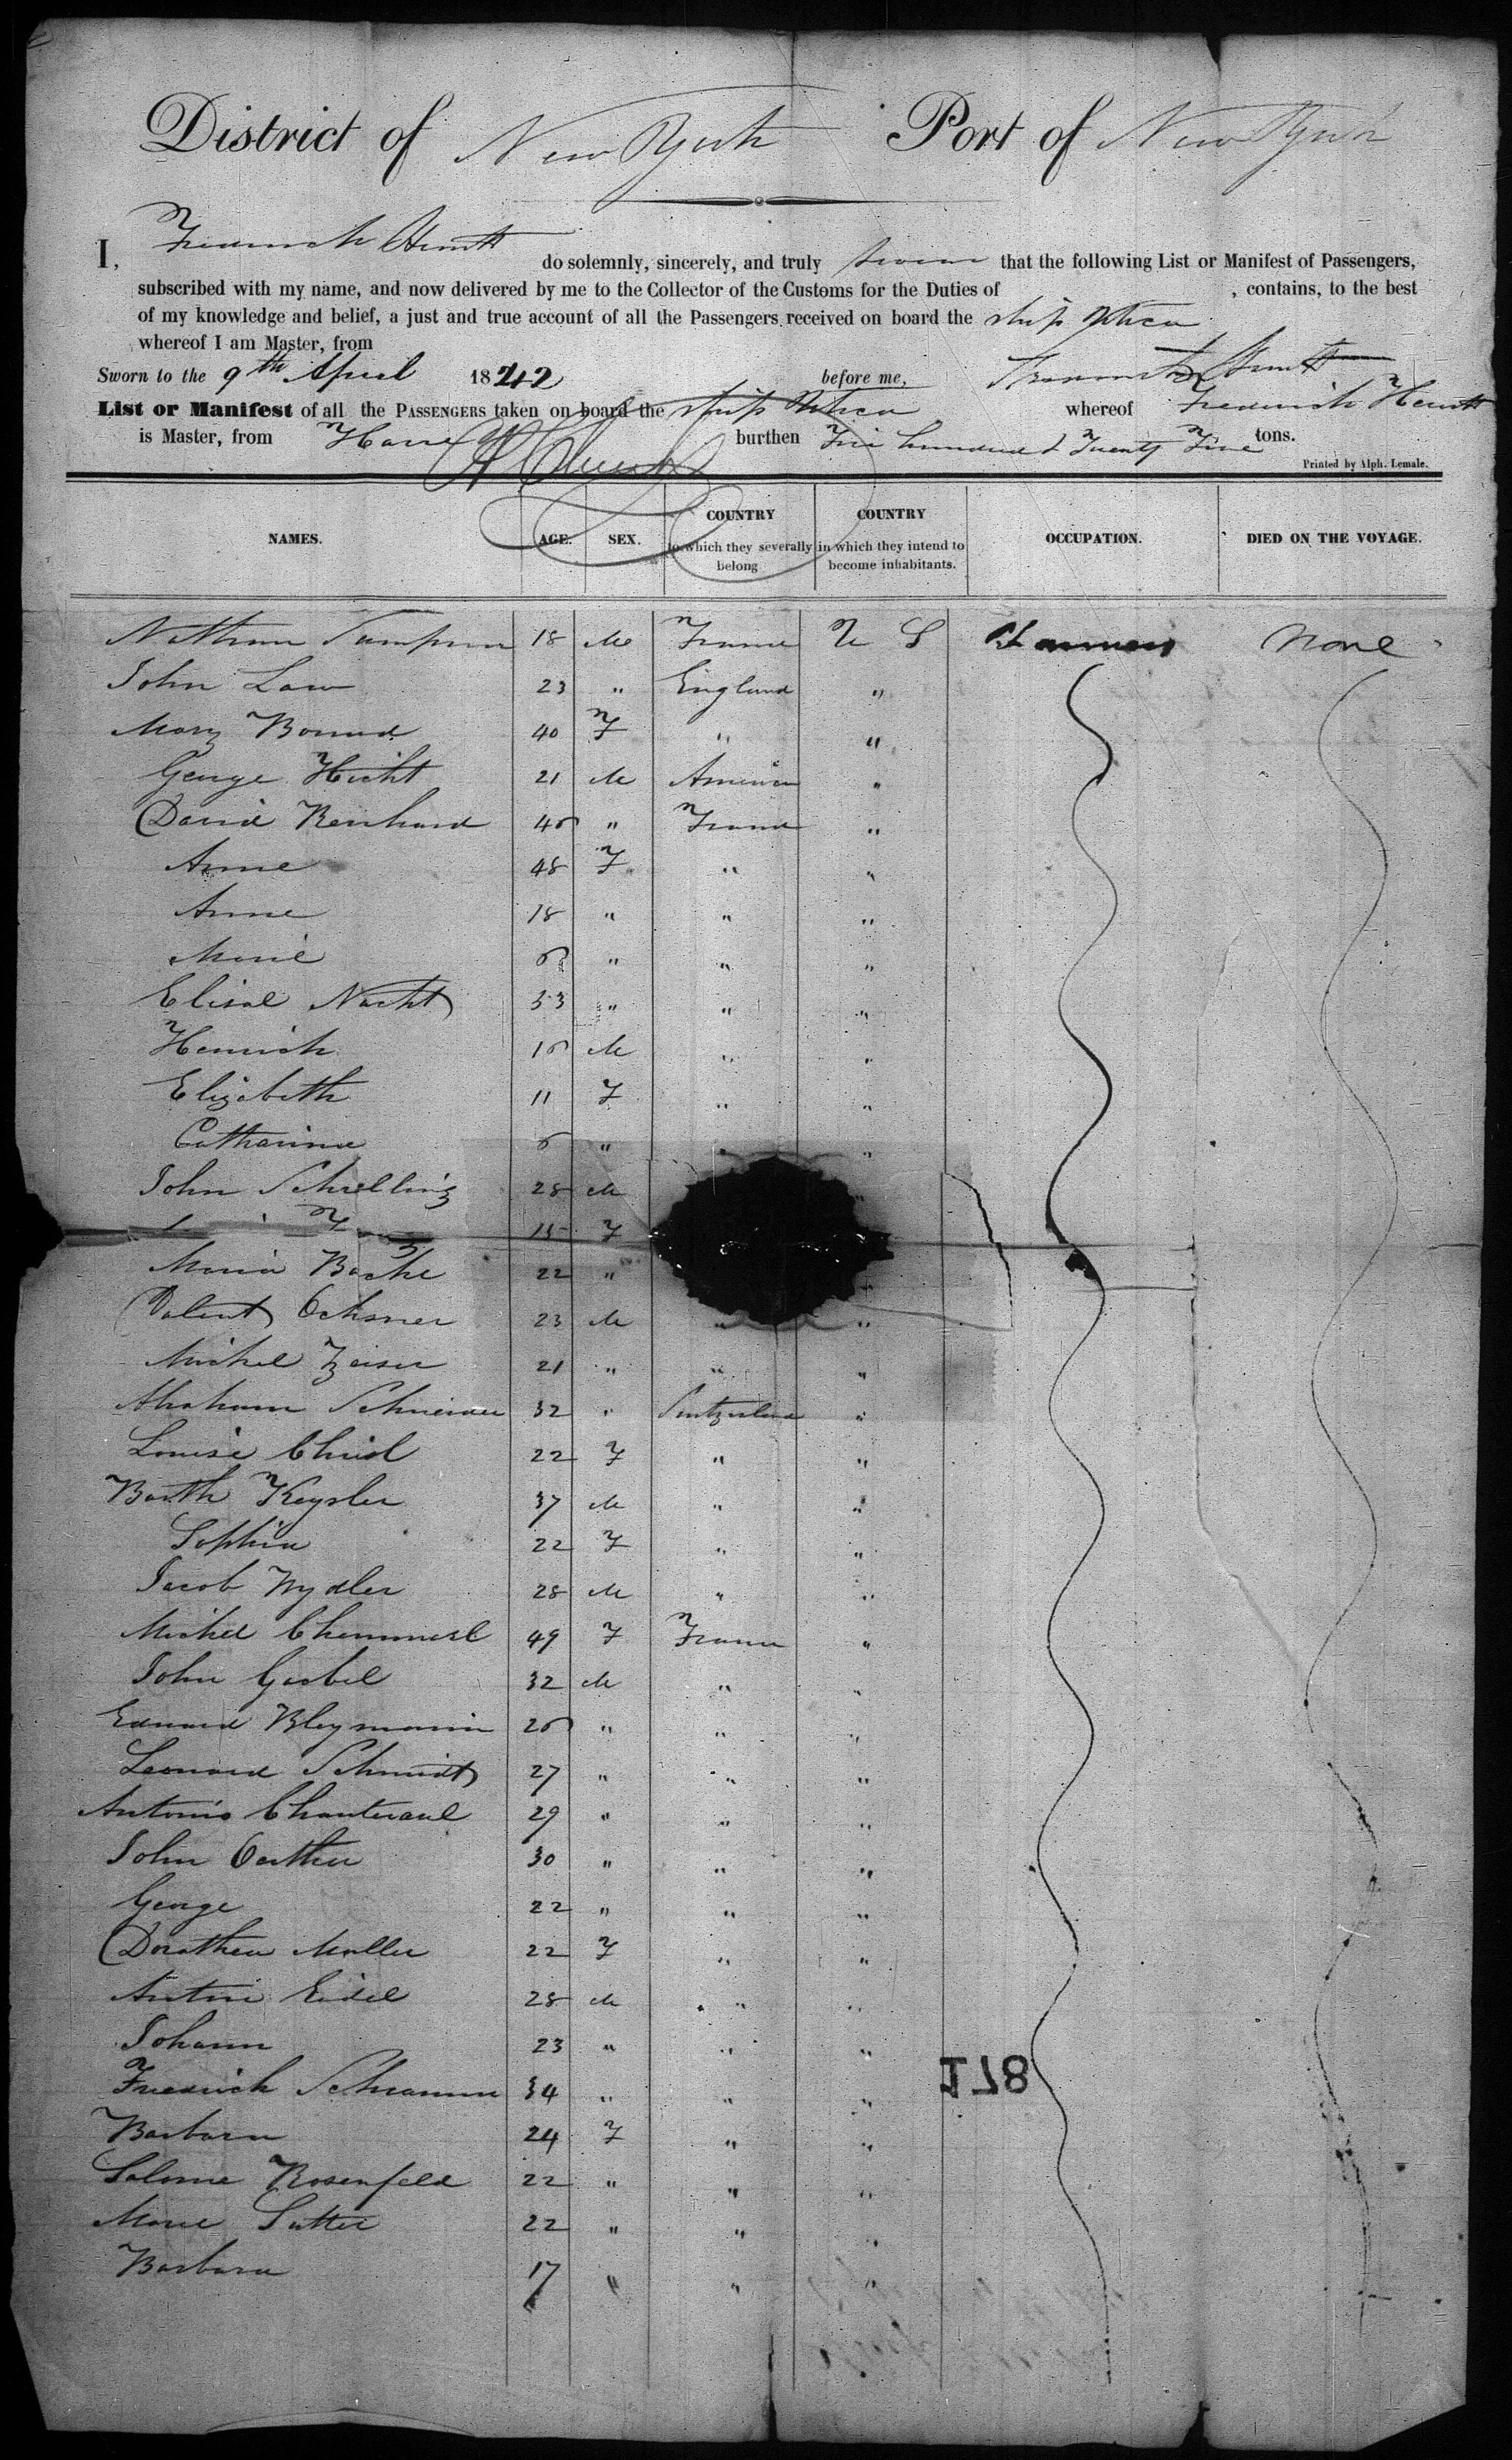 District of New York Port of New York
I, Frederick Hewitt do solemnly, sincerely, and truly swear that the following List or Manifest of Passengers,
subscribed with my name, and now delivered by me to the Collector of the Customs for the Duties of , contains, to the best
of my knowledge and belief, a just and true account of all the Passengers received on board the ship Utica
whereof I am Master, from
Sworn to the 9th April 1842 before me, Frederick Hewitt
List or Manifest of all the PASSENGERS taken on board the ship Utica whereof Frederick Hewitt
is Master, from Havre burthen Five hundred & Twenty Five tons.
Printed by Alph. Lemale.
NAMES. AGE. SEX. COUNTRY to which they severally belong COUNTRY in which they intend to become inhabitants. OCCUPATION. DIED ON THE VOYAGE.
Nathan 18 M France U S None
John Law 23 " England "
Mary 40 F " "
George Hecht 21 M America "
David Reinhard 46 " France "
Anne 48 F " "
Anne 18 " " "
Marie 6 " " "
Elisal Nacht 33 " " "
Heinrich 16 M " "
Elizabeth 11 F " "
Catharina 6 " " "
John Schelling 28 M "
15 F
Maria Bache 22 " "
Valent Ochsner 23 M " "
Michel Zeiser 21 " " "
Abraham Schneider 32 " Switzerland "
Louise Christ 22 F " "
Barth Keysler 37 M " "
Sophia 22 F " "
Jacob Wydler 28 M " "
Michel 49 F France "
John Goebel 32 M " "
Edward Bleymann 26 " " "
Leonard Schmidt 27 " " "
Antonio 29 " " "
John Oerther 30 " " "
George 22 " " "
Dorothea Muller 22 F " "
Anton Eidel 28 M " "
Johann 23 " " "
178
Friedrich Schramm 34 " " "
Barbara 24 F " "
Salome Rosenfeld 22 " " "
Marie Sutter 22 " " "
Barbara 17 " " "